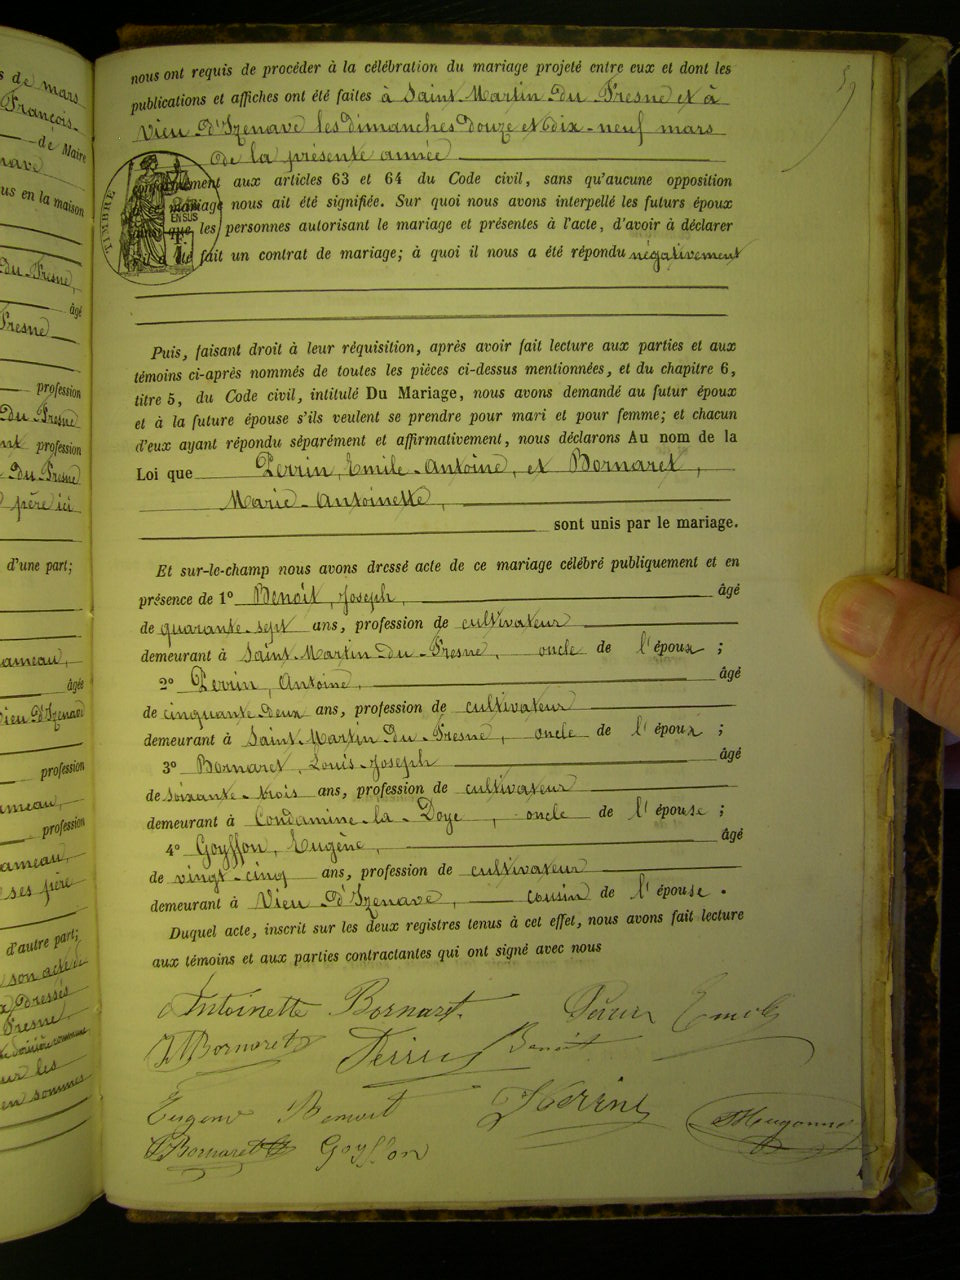 nous ont requis de procéder à la célébration du mariage projeté entre eux et dont les
publications et affiches ont été faites à Saint-Martin-Du-Fresne et à
Vieu-D'Izenave les Dimanches Douze et dix-neuf mars
de la présente année
conformément aux articles 63 et 64 du Code civil, sans qu'aucune opposition
mariage nous ait été signifiée. Sur quoi nous avons interpellé les futurs époux
que les personnes autorisant le mariage et présentes à l'acte, d'avoir à déclarer
été fait un contrat de mariage; à quoi il nous a été répondu négativement
TIMBRE
EN SUS
Puis, faisant droit à leur réquisition, après avoir fait lecture aux parties et aux
témoins ci-après nommés de toutes les pièces ci-dessus mentionnées, et du chapitre 6,
titre 5, du Code civil, intitulé Du Mariage, nous avons demandé au futur époux
et à la future épouse s'ils veulent se prendre pour mari et pour femme; et chacun
d'eux ayant répondu séparément et affirmativement, nous déclarons Au nom de la
Loi que Perrin, Emile-Antoine, et Bornaret,
Marie-Antoinette,
sont unis par le mariage.
Et sur-le-champ nous avons dressé acte de ce mariage célébré publiquement et en
présence de 1° Benoît, Joseph, âgé
de quarante-sept ans, profession de cultivateur
demeurant à Saint-Martin-Du-Fresne, oncle de l'époux ;
2° Perrin, Antoine, âgé
de cinquante-Deux ans, profession de cultivateur
demeurant à Saint-Martin-Du-Fresne, oncle de l'époux ;
3° Bornaret, Louis-Joseph âgé
de soixante-trois ans, profession de cultivateur
demeurant à Condamine-la-Doye, oncle de l'épouse ;
4° Goyffon, Eugène, âgé
de vingt-cinq ans, profession de cultivateur
demeurant à Vieu-D'Izenave, cousin de l'épouse.
Duquel acte, inscrit sur les deux registres tenus à cet effet, nous avons fait lecture
aux témoins et aux parties contractantes qui ont signé avec nous
Antoinette Bornart. Perrin Emile
Bornaret Perrin Benoit
Eugène Benoit Perrin
Bornaret Goyffon
s de mars
François-
de Maire
nave
us en la maison
Du-Fresne,
âgé
Fresne
profession
Du-Fresne
profession
Du-Fresne
père ici
d'une part;
ameau,
âgée
Vieu-D'Izenave
profession
ameau,
profession
ameau,
ses père
d'autre part;
son acte de
Dressés
Fresne
ur les
en sommes